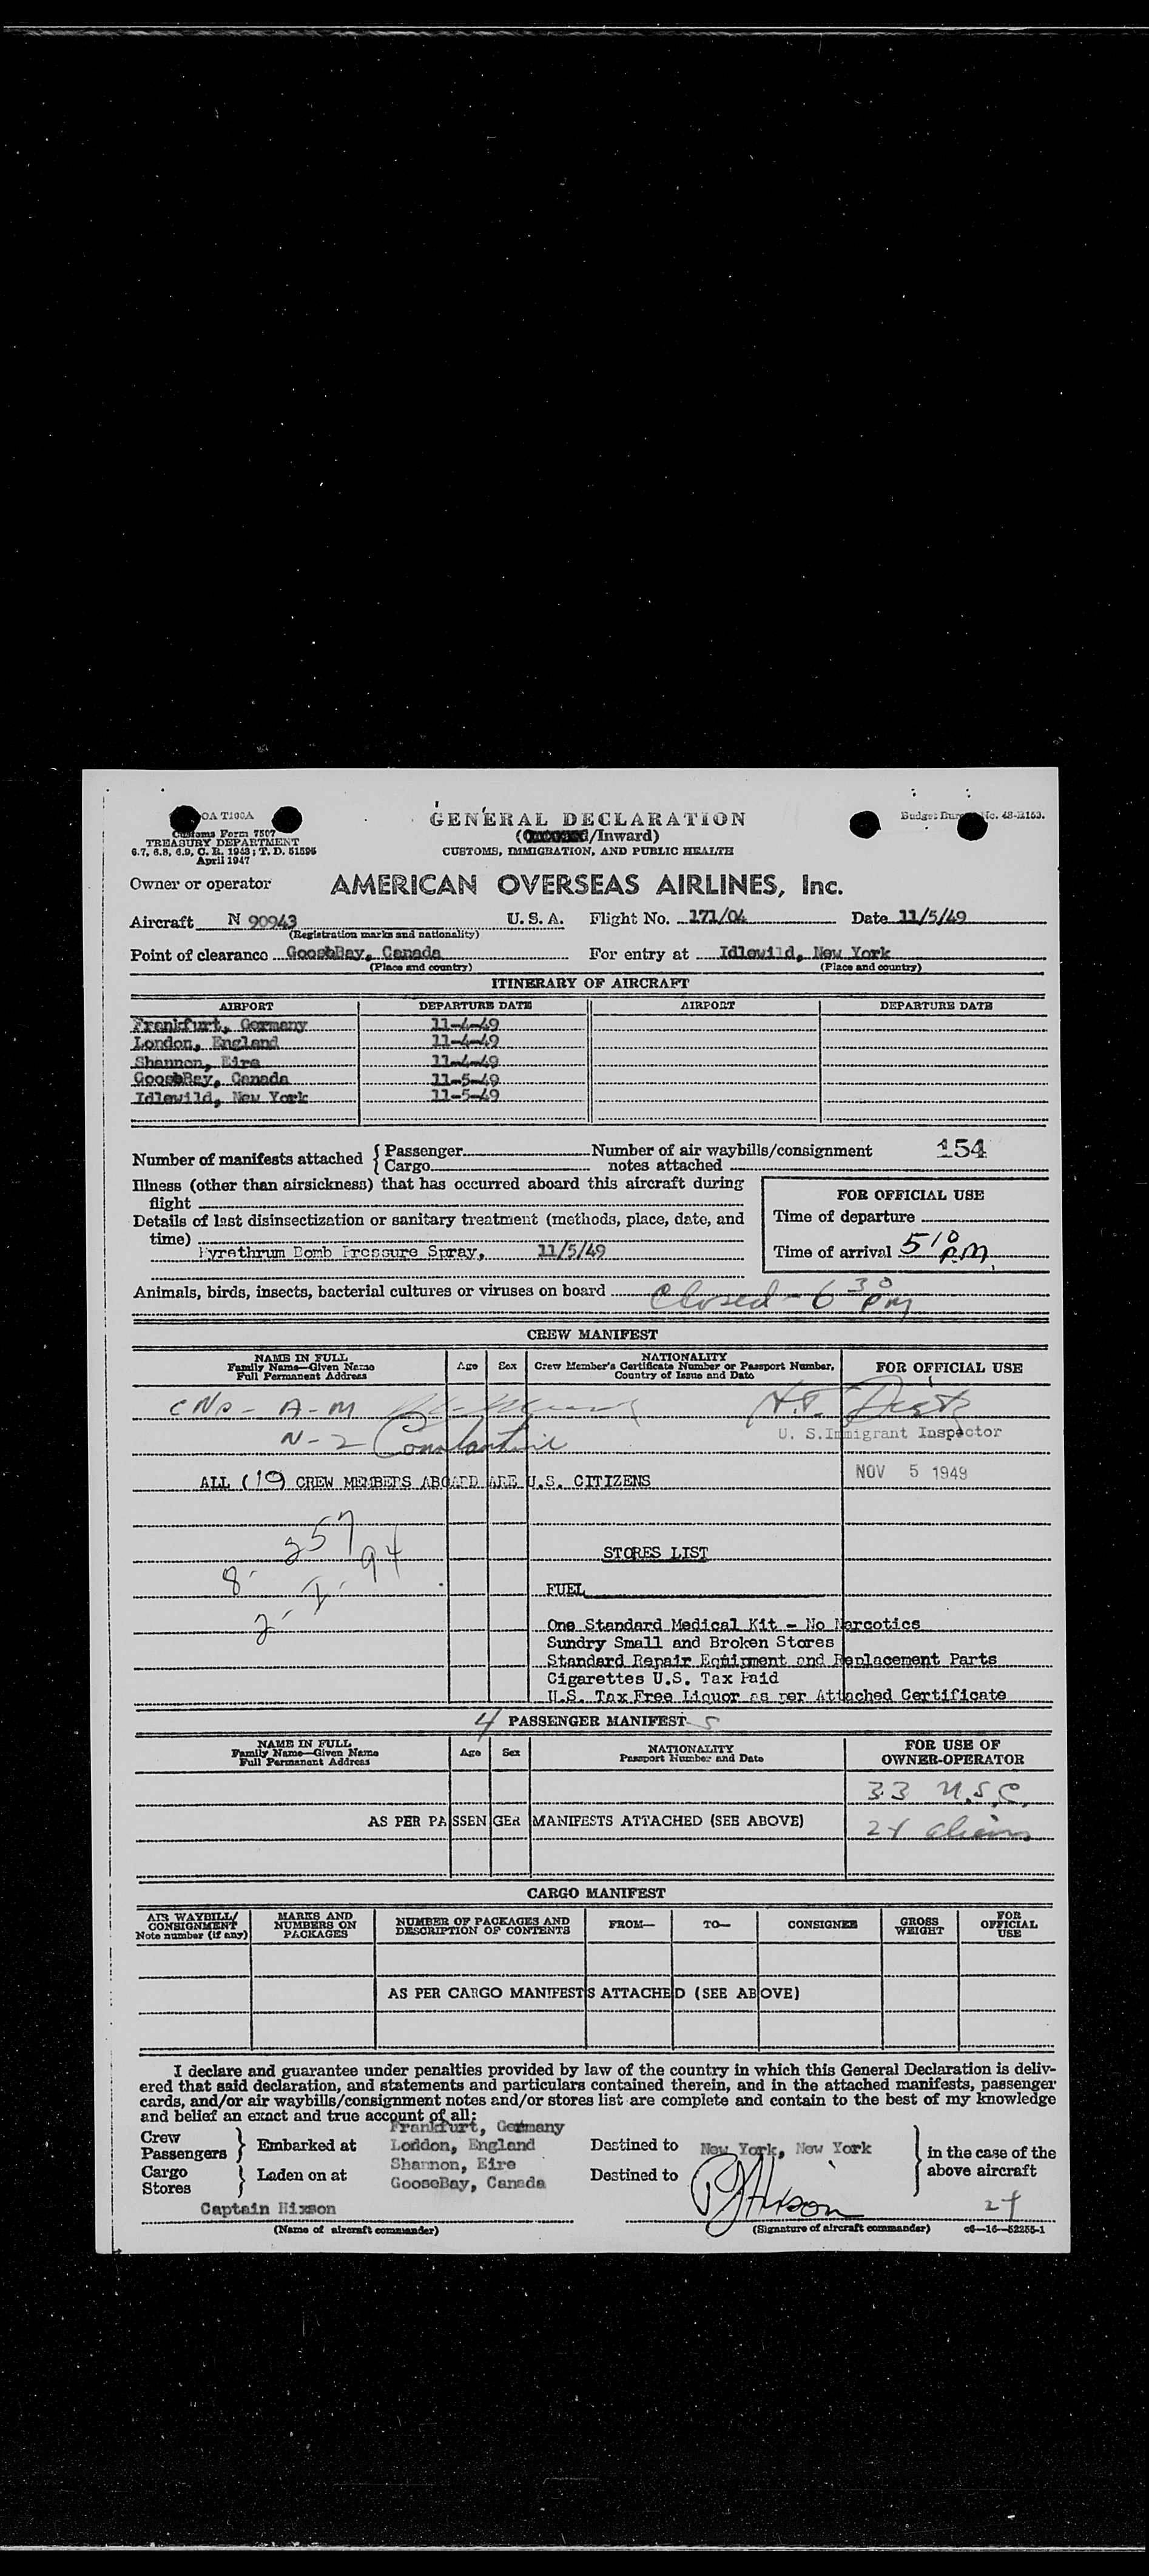 OA T100A
Customs Form 7507
TREASURY DEPARTMENT
6.7, 6.8, 6.9, C. R. 1943; T. D. 51595
April 1947
GENERAL DECLARATION
(/Inward)
CUSTOMS, IMMIGRATION, AND PUBLIC HEALTH
Budget Bureau No. 48-R153.
Owner or operator AMERICAN OVERSEAS AIRLINES, Inc.
Aircraft N 90943 U. S. A. Flight No. 171/04 Date 11/5/49
(Registration marks and nationality)
Point of clearance GooseBay, Canada For entry at Idlewild, New York
(Place and country) (Place and country)
ITINERARY OF AIRCRAFT
AIRPORT DEPARTURE DATE AIRPORT DEPARTURE DATE
Frankfurt, Germany 11-4-49
London, England 11-4-49
Shannon, Eire 11-4-49
GooseBay, Canada 11-5-49
Idlewild, New York 11-5-49
Number of manifests attached { Passenger Number of air waybills/consignment 154
{ Cargo notes attached
Illness (other than airsickness) that has occurred aboard this aircraft during
flight
FOR OFFICIAL USE
Details of last disinsectization or sanitary treatment (methods, place, date, and
time)
Time of departure
Pyrethrum Bomb Pressure Spray, 11/5/49
Time of arrival 5 10 PM
Animals, birds, insects, bacterial cultures or viruses on board Closed - 6 30 PM
CREW MANIFEST
NAME IN FULL
Family Name—Given Name
Full Permanent Address
Age Sex
NATIONALITY
Crew Member's Certificate Number or Passport Number,
Country of Issue and Date
FOR OFFICIAL USE
A-M
N-2 Constantine
U. S. Immigrant Inspector
ALL (19) CREW MEMBERS ABOARD ARE U.S. CITIZENS
NOV 5 1949
257
94
8-
2-
STORES LIST
FUEL
One Standard Medical Kit - No Narcotics
Sundry Small and Broken Stores
Standard Repair Equipment and Replacement Parts
Cigarettes U.S. Tax Paid
U.S. Tax Free Liquor as per Attached Certificate
4 PASSENGER MANIFEST 5
NAME IN FULL
Family Name—Given Name
Full Permanent Address
Age Sex
NATIONALITY
Passport Number and Date
FOR USE OF
OWNER-OPERATOR
33 U.S.C.
AS PER PASSENGER MANIFESTS ATTACHED (SEE ABOVE)
24 aliens
CARGO MANIFEST
AIR WAYBILL/
CONSIGNMENT
Note number (if any)
MARKS AND
NUMBERS ON
PACKAGES
NUMBER OF PACKAGES AND
DESCRIPTION OF CONTENTS
FROM— TO— CONSIGNEE
GROSS
WEIGHT
FOR
OFFICIAL
USE
AS PER CARGO MANIFESTS ATTACHED (SEE ABOVE)
I declare and guarantee under penalties provided by law of the country in which this General Declaration is deliv-
ered that said declaration, and statements and particulars contained therein, and in the attached manifests, passenger
cards, and/or air waybills/consignment notes and/or stores list are complete and contain to the best of my knowledge
and belief an exact and true account of all:
Crew
Passengers } Embarked at
Cargo
Stores } Laden on at
Frankfurt, Germany
London, England
Shannon, Eire
GooseBay, Canada
Destined to New York, New York
Destined to
in the case of the
above aircraft
24
Captain Hixson
(Name of aircraft commander) (Signature of aircraft commander) c6—16—52255-1